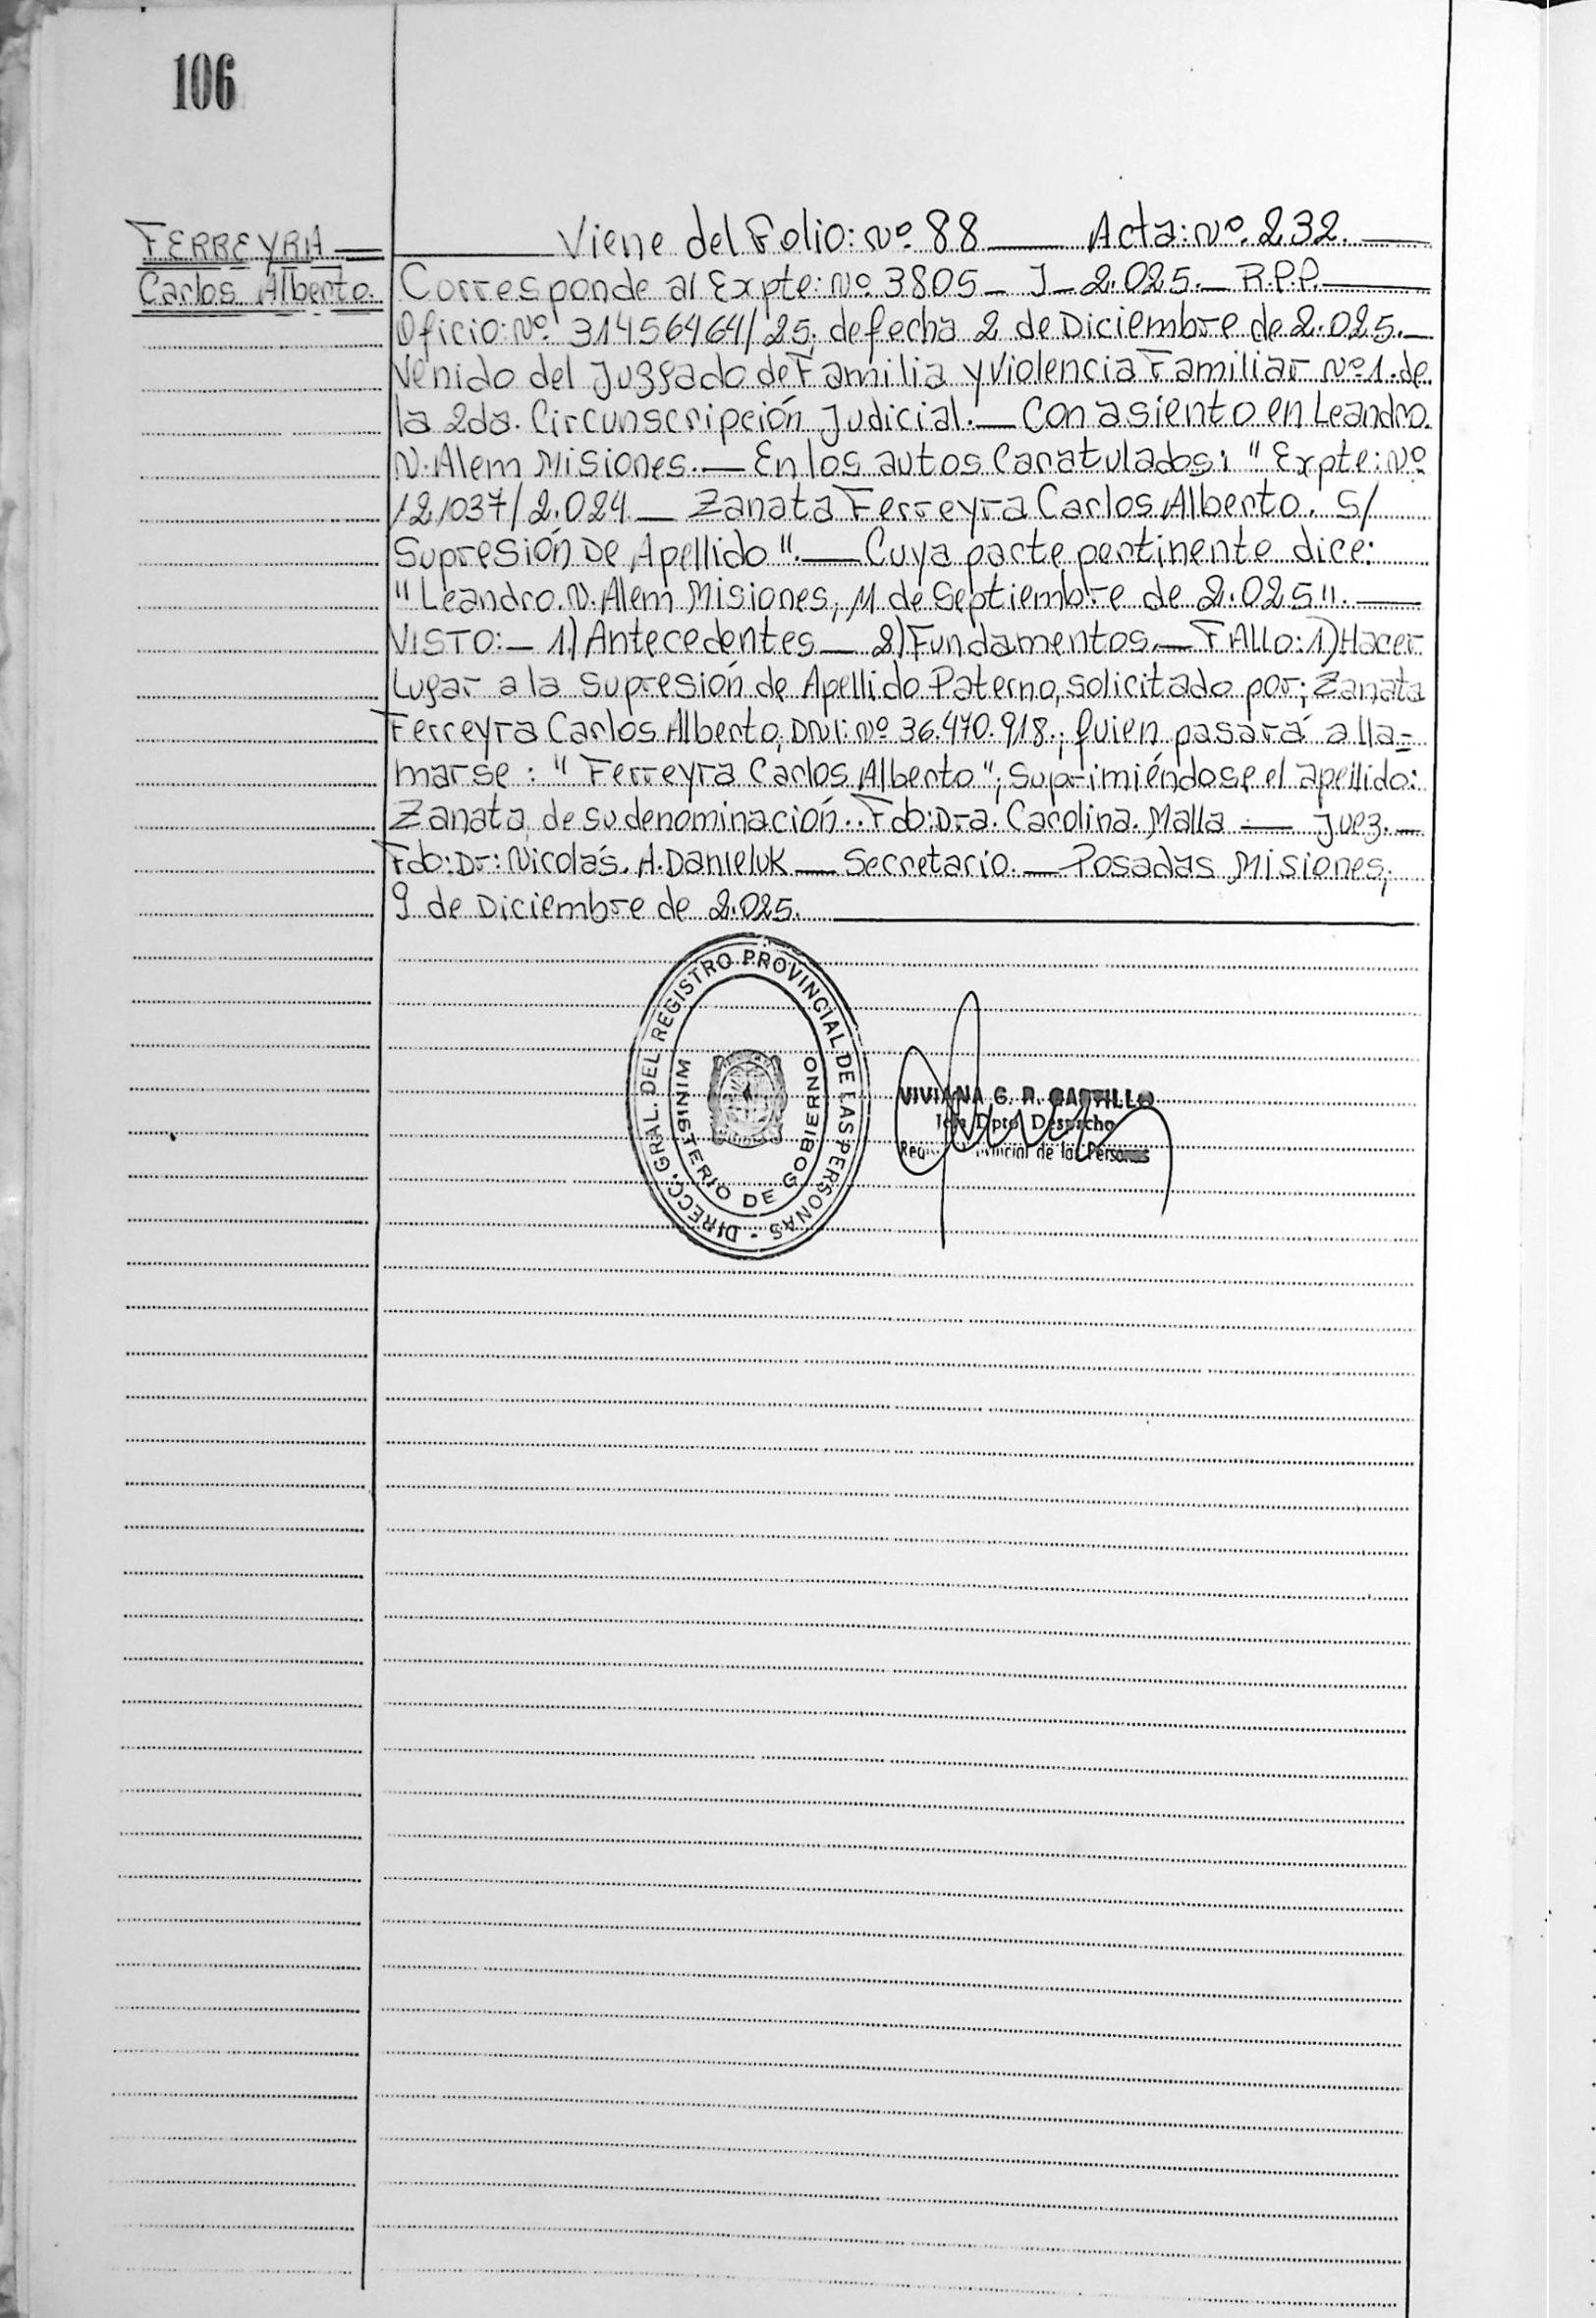 106
FERREYRA
Carlos Alberto.
Viene del Folio: Nº. 88 — Acta: Nº. 232. —
Corresponde al Expte: Nº. 3805 — J — 2.025. — R.P.P. —
Oficio: Nº. 31456464/25, de fecha 2 de Diciembre de 2.025. —
Venido del Juzgado de Familia y Violencia Familiar Nº 1. de
la 2da. Circunscripción Judicial. — Con asiento en Leandro.
N. Alem Misiones. — En los autos Caratulados: " Expte: Nº
121037/2.024. — Zanata Ferreyra Carlos Alberto. S/
Supresión De Apellido ". — Cuya parte pertinente dice:
" Leandro. N. Alem Misiones, 11 de Septiembre de 2.025 ". —
VISTO: — 1.) Antecedentes — 2) Fundamentos. — FALLO: 1) Hacer
Lugar a la Supresión de Apellido Paterno, solicitado por; Zanata
Ferreyra Carlos Alberto, DNI: Nº 36.470.918.; quien pasará a lla=
marse: " Ferreyra Carlos Alberto"; Suprimiéndose el apellido:
Zanata, de su denominación.. Fdo: Dra. Carolina. Malla — Juez. —
Fdo: Dr: Nicolás. A. Danieluk — Secretario. — Posadas Misiones,
9 de Diciembre de 2.025.
DIRECC. GRAL. DEL REGISTRO PROVINCIAL DE LAS PERSONAS -
MINISTERIO DE GOBIERNO
VIVIANA G. R. CASTILLO
Dpto Despacho
de las Personas